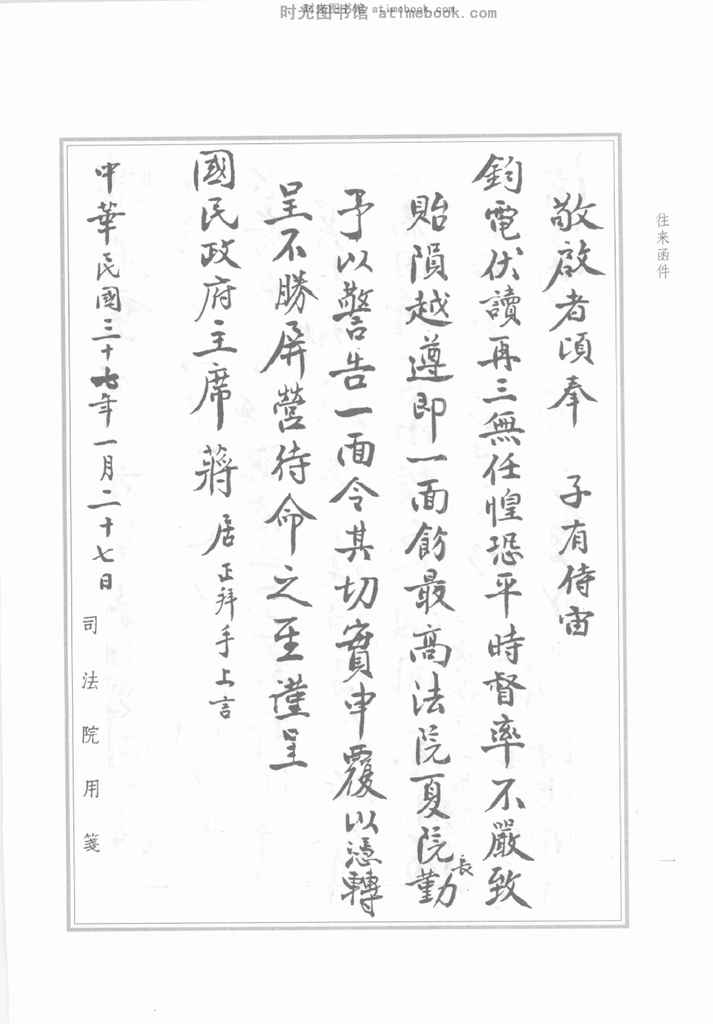 时光图书馆 atimebook.com
往来函件
敬啟者頃奉 子有侍宙
鈞電伏讀再三無任惶恐平時督率不嚴致
貽隕越遵即一面飭最高法院夏院長勤
予以警告一面令其切實申覆以憑轉
呈不勝屏營待命之至謹呈
國民政府主席蔣 居正拜手上言
中華民國三十七年一月二十七日
司法院用箋
一